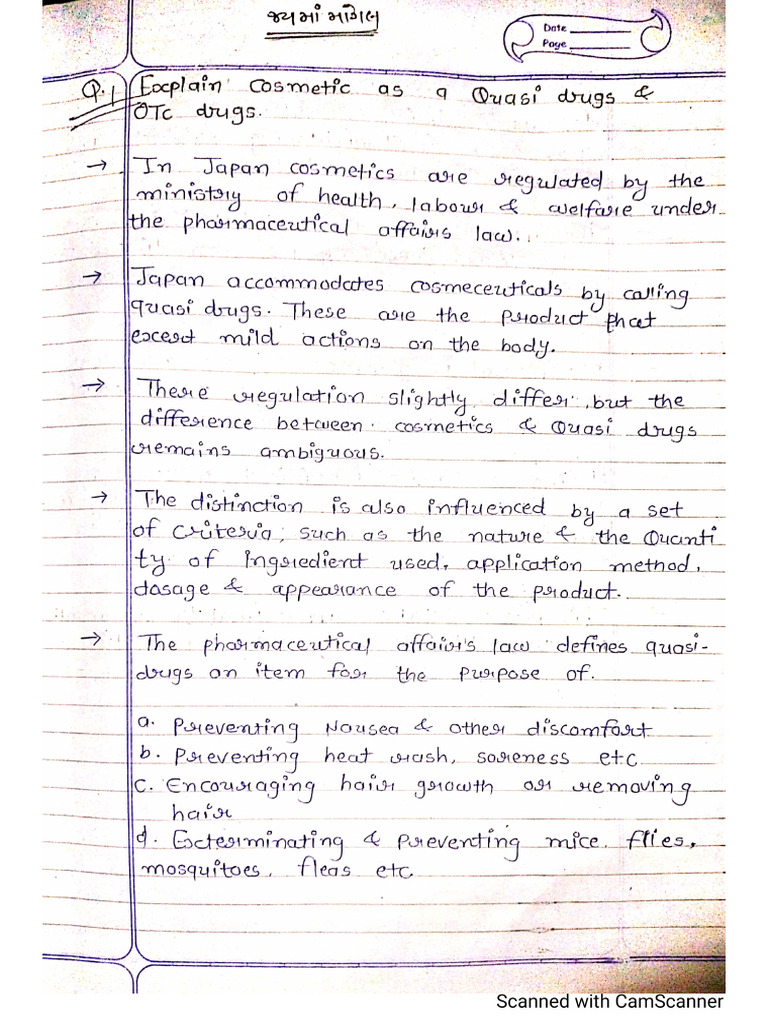 જય માં મોગલ
Date
Page
Q.1 Explain cosmetic as a Quasi drugs &
OTC drugs.
→ In Japan cosmetics are regulated by the
ministry of health, labour & welfare under
the pharmaceutical affairs law.
→ Japan accommodates cosmeceuticals by calling
quasi drugs. These are the product that
excert mild actions on the body.
→ There regulation slightly differ, but the
difference between cosmetics & Quasi drugs
remains ambiguous.
→ The distinction is also influenced by a set
of criteria, such as the nature & the Quanti
ty of ingredient used, application method,
dosage & appearance of the product.
→ The pharmaceutical affairs law defines quasi-
drugs an item for the purpose of.
a. Preventing Nausea & other discomfort
b. Preventing heat rash, soreness etc
c. Encouraging hair growth or removing
hair
d. Exterminating & Preventing mice, flies,
mosquitoes, fleas etc
Scanned with CamScanner